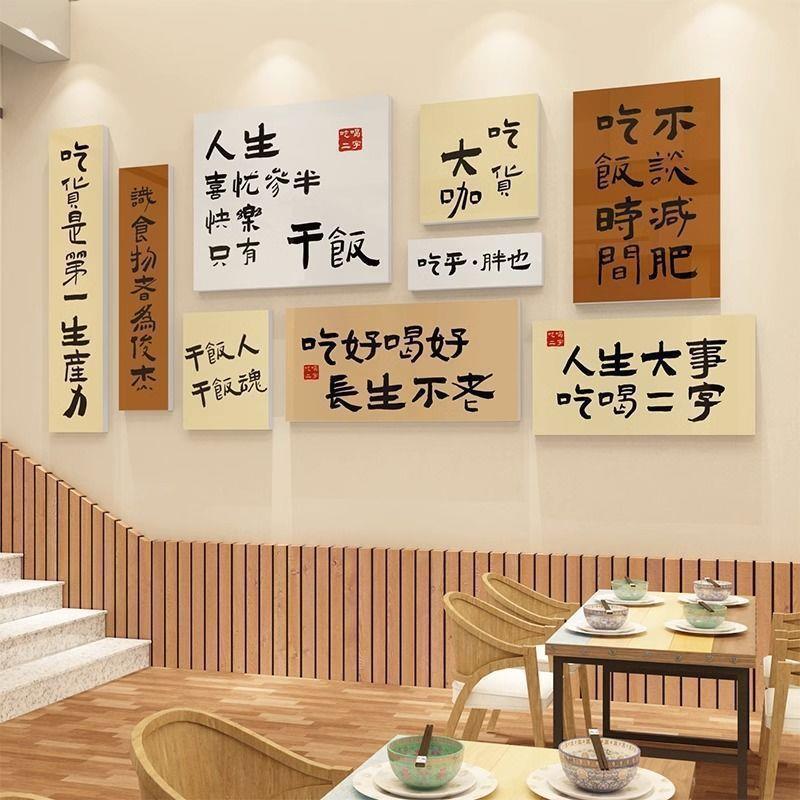 吃貨是第一生産力
識食物者為俊杰
人生
喜忧參半
快樂
只有 干飯
吃喝
二字
吃貨
大咖
吃乎·胖也
不談減肥
吃飯時間
干飯人
干飯魂
吃好喝好
長生不老
吃喝
二字
人生大事
吃喝二字
吃喝
二字